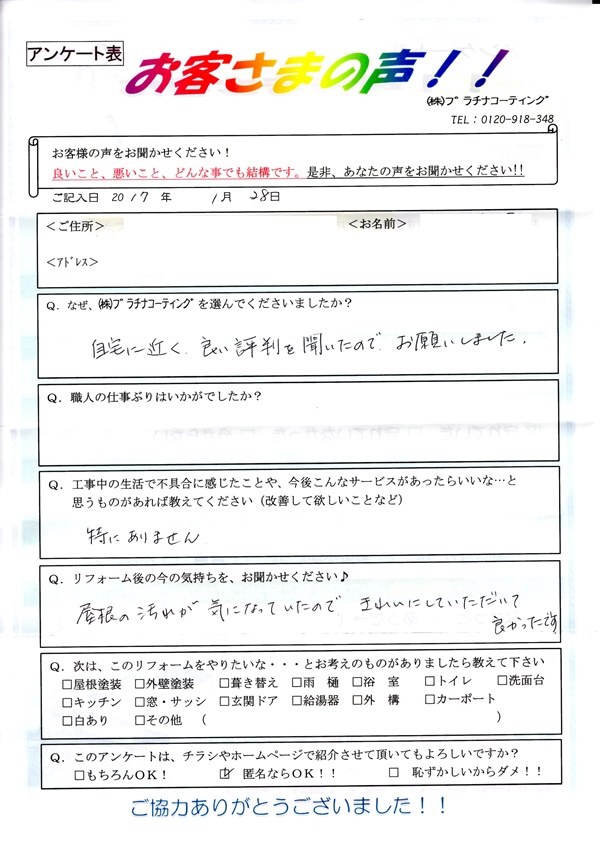 アンケート表
お客さまの声！！
㈱プラチナコーティング
TEL：0120-918-348
お客様の声をお聞かせください！
良いこと、悪いこと、どんな事でも結構です。是非、あなたの声をお聞かせください!!
ご記入日 2017 年 1月 28日
＜ご住所＞ ＜お名前＞
＜ｱﾄﾞﾚｽ＞
Q．なぜ、㈱ﾌﾟﾗﾁﾅｺｰﾃｨﾝｸﾞを選んでくださいましたか？
自宅に近く、良い評判を聞いたので、お願いしました。
Q．職人の仕事ぶりはいかがでしたか？
Q．工事中の生活で不具合に感じたことや、今後こんなサービスがあったらいいな…と
思うものがあれば教えてください（改善して欲しいことなど）
特にありません
Q．リフォーム後の今の気持ちを、お聞かせください♪
屋根の汚れが気になっていたので きれいにしていただいて
良かったです
Q．次は、このリフォームをやりたいな・・・とお考えのものがありましたら教えて下さい
□屋根塗装 □外壁塗装 □葺き替え □雨 樋 □浴 室 □トイレ □洗面台
□キッチン □窓・サッシ □玄関ドア □給湯器 □外 構 □カーポート
□白あり □その他 （ ）
Q．このアンケートは、チラシやホームページで紹介させて頂いてもよろしいですか？
□もちろんOK！ ☑ 匿名ならOK！！ □ 恥ずかしいからダメ！！
ご協力ありがとうございました！！